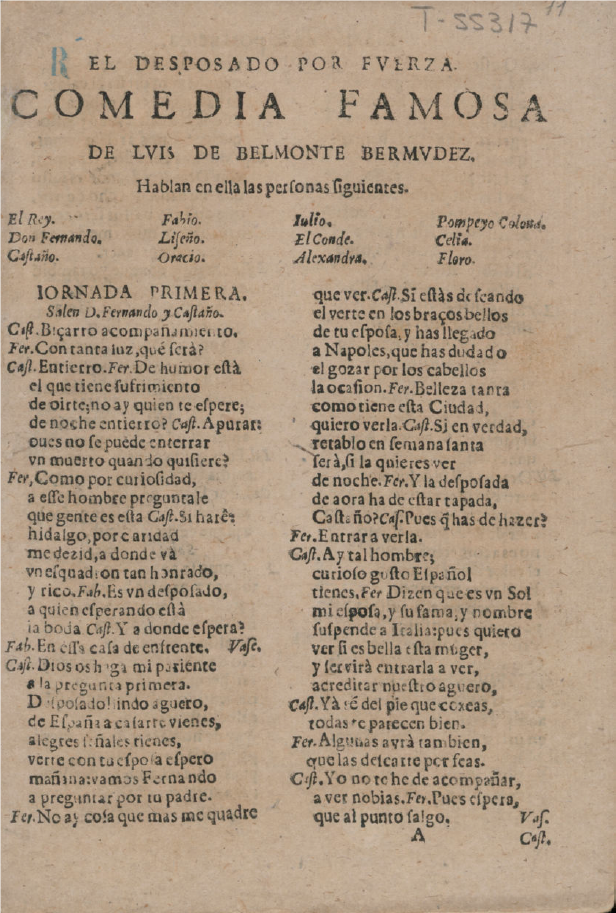 T-55317
11
R
EL DESPOSADO POR FVERZA.
COMEDIA FAMOSA
DE LVIS DE BELMONTE BERMVDEZ.
Hablan en ella las personas siguientes.
El Rey. Fabio. Iulio. Pompeyo Colona.
Don Fernando. Liseño. El Conde. Celia.
Castaño. Oracio. Alexandra. Floro.
IORNADA PRIMERA.
Salen D. Fernando y Castaño.
Cast. Biçarro acompañamiento.
Fer. Con tanta luz, qué serà?
Cast. Entierro. Fer. De humor està
el que tiene sufrimiento
de oirte; no ay quien te espere;
de noche entierro? Cast. Apurar:
pues no se puede enterrar
vn muerto quando quisiere?
Fer. Como por curiosidad,
a esse hombre preguntale
que gente es esta Cast. Si harè:
hidalgo, por caridad
me dezid, a donde và
vn esquadron tan honrado,
y rico. Fab. Es vn desposado,
a quien esperando està
la boda Cast. Y a donde espera?
Fab. En essa casa de enfrente. Vase.
Cast. Dios os haga mi pariente
a la pregunta primera.
Desposado! lindo aguero,
de España a casarte vienes,
alegres señales tienes,
verte con tu esposa espero
mañana: vamos Fernando
a preguntar por tu padre.
Fer. No ay cosa que mas me quadre
que ver. Cast. Si estàs deseando
el verte en los braços bellos
de tu esposa, y has llegado
a Napoles, que has dudado
el gozar por los cabellos
la ocasion. Fer. Belleza tanta
como tiene esta Ciudad,
quiero verla. Cast. Si en verdad,
retablo en semana santa
serà, si la quieres ver
de noche. Fer. Y la desposada
de aora ha de estar tapada,
Castaño? Cas. Pues q̃ has de hazer?
Fer. Entrar a verla.
Cast. Ay tal hombre;
curioso gusto Español
tienes. Fer Dizen que es vn Sol
mi esposa, y su fama, y nombre
suspende a Italia: pues quiero
ver si es bella esta muger,
y servirà entrarla a ver,
acreditar nuestro aguero,
Cast. Yà sé del pie que coxeas,
todas te parecen bien.
Fer. Algunas avrà tambien,
que las descarte por feas.
Cast. Yo no te he de acompañar,
a ver nobias. Fer. Pues espera,
que al punto salgo. Vas.
A Cast.